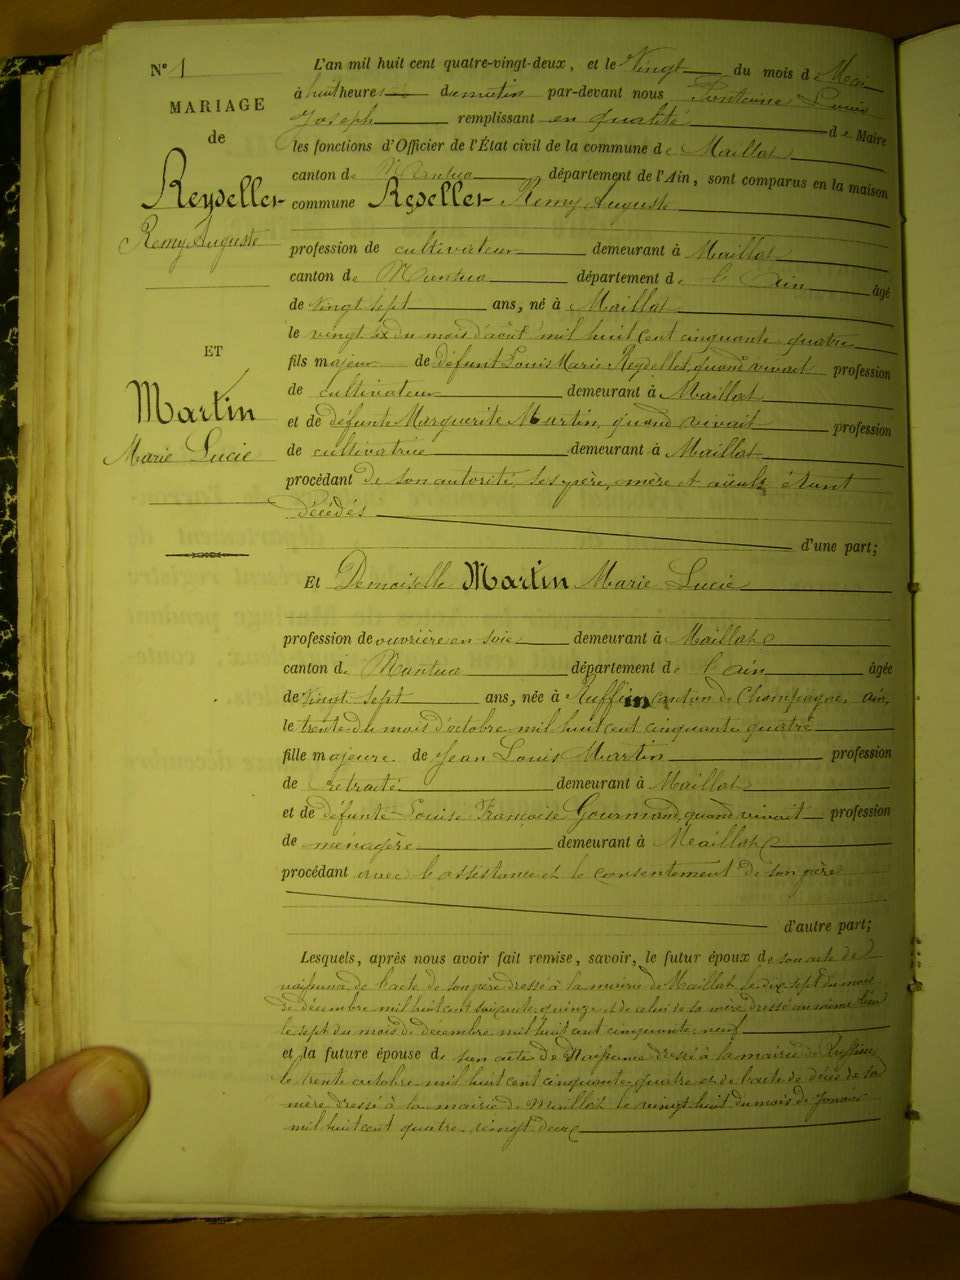 N° 1
MARIAGE
de
Reydellet
Remy Auguste
ET
Martin
Marie Lucie
L'an mil huit cent quatre-vingt-deux, et le Vingt du mois de Mai
à huit heures du matin par-devant nous Fontaine Louis
Joseph remplissant en qualité de Maire
les fonctions d'Officier de l'État civil de la commune de Maillat
canton de Nantua département de l'Ain, sont comparus en la maison
commune Reydellet Remy Auguste
profession de cultivateur demeurant à Maillat
canton de Nantua département de l'Ain âgé
de vingt sept ans, né à Maillat
le vingt du mois d'août mil huit cent cinquante quatre
fils majeur de défunt Louis Marie Reydellet, quand vivait profession
de cultivateur demeurant à Maillat
et de défunte Marguerite Martin, quand vivait profession
de cultivatrice demeurant à Maillat
procédant de son autorité, ses père, mère et aïeuls étant
décédés
d'une part;
Et Demoiselle Martin Marie Lucie
profession de ouvrière en soie demeurant à Maillat
canton de Nantua département de l'ain âgée
de vingt sept ans, née à Ruffieu canton de Champagne, ain,
le trente du mois d'octobre mil huit cent cinquante quatre
fille majeure de Jean Louis Martin profession
de retraité demeurant à Maillat
et de défunte Louise Françoise Gourmand, quand vivait profession
de ménagère demeurant à Maillat
procédant avec le assistance et le consentement de son père
d'autre part;
Lesquels, après nous avoir fait remise, savoir, le futur époux de son acte de
naissance de l'acte de son père dressé à la mairie de Maillat le dix sept du mois
de décembre mil huit cent soixante quinze et de celui de sa mère dressé au même lieu
le sept du mois de décembre mil huit cent cinquante neuf
et la future épouse de son acte de Naissance dressé à la mairie de Ruffieu
le trente octobre mil huit cent cinquante quatre et de l'acte de décès de sa
mère dressé à la mairie de Maillat le vingt huit du mois de janvier
mil huit cent quatre vingt deux